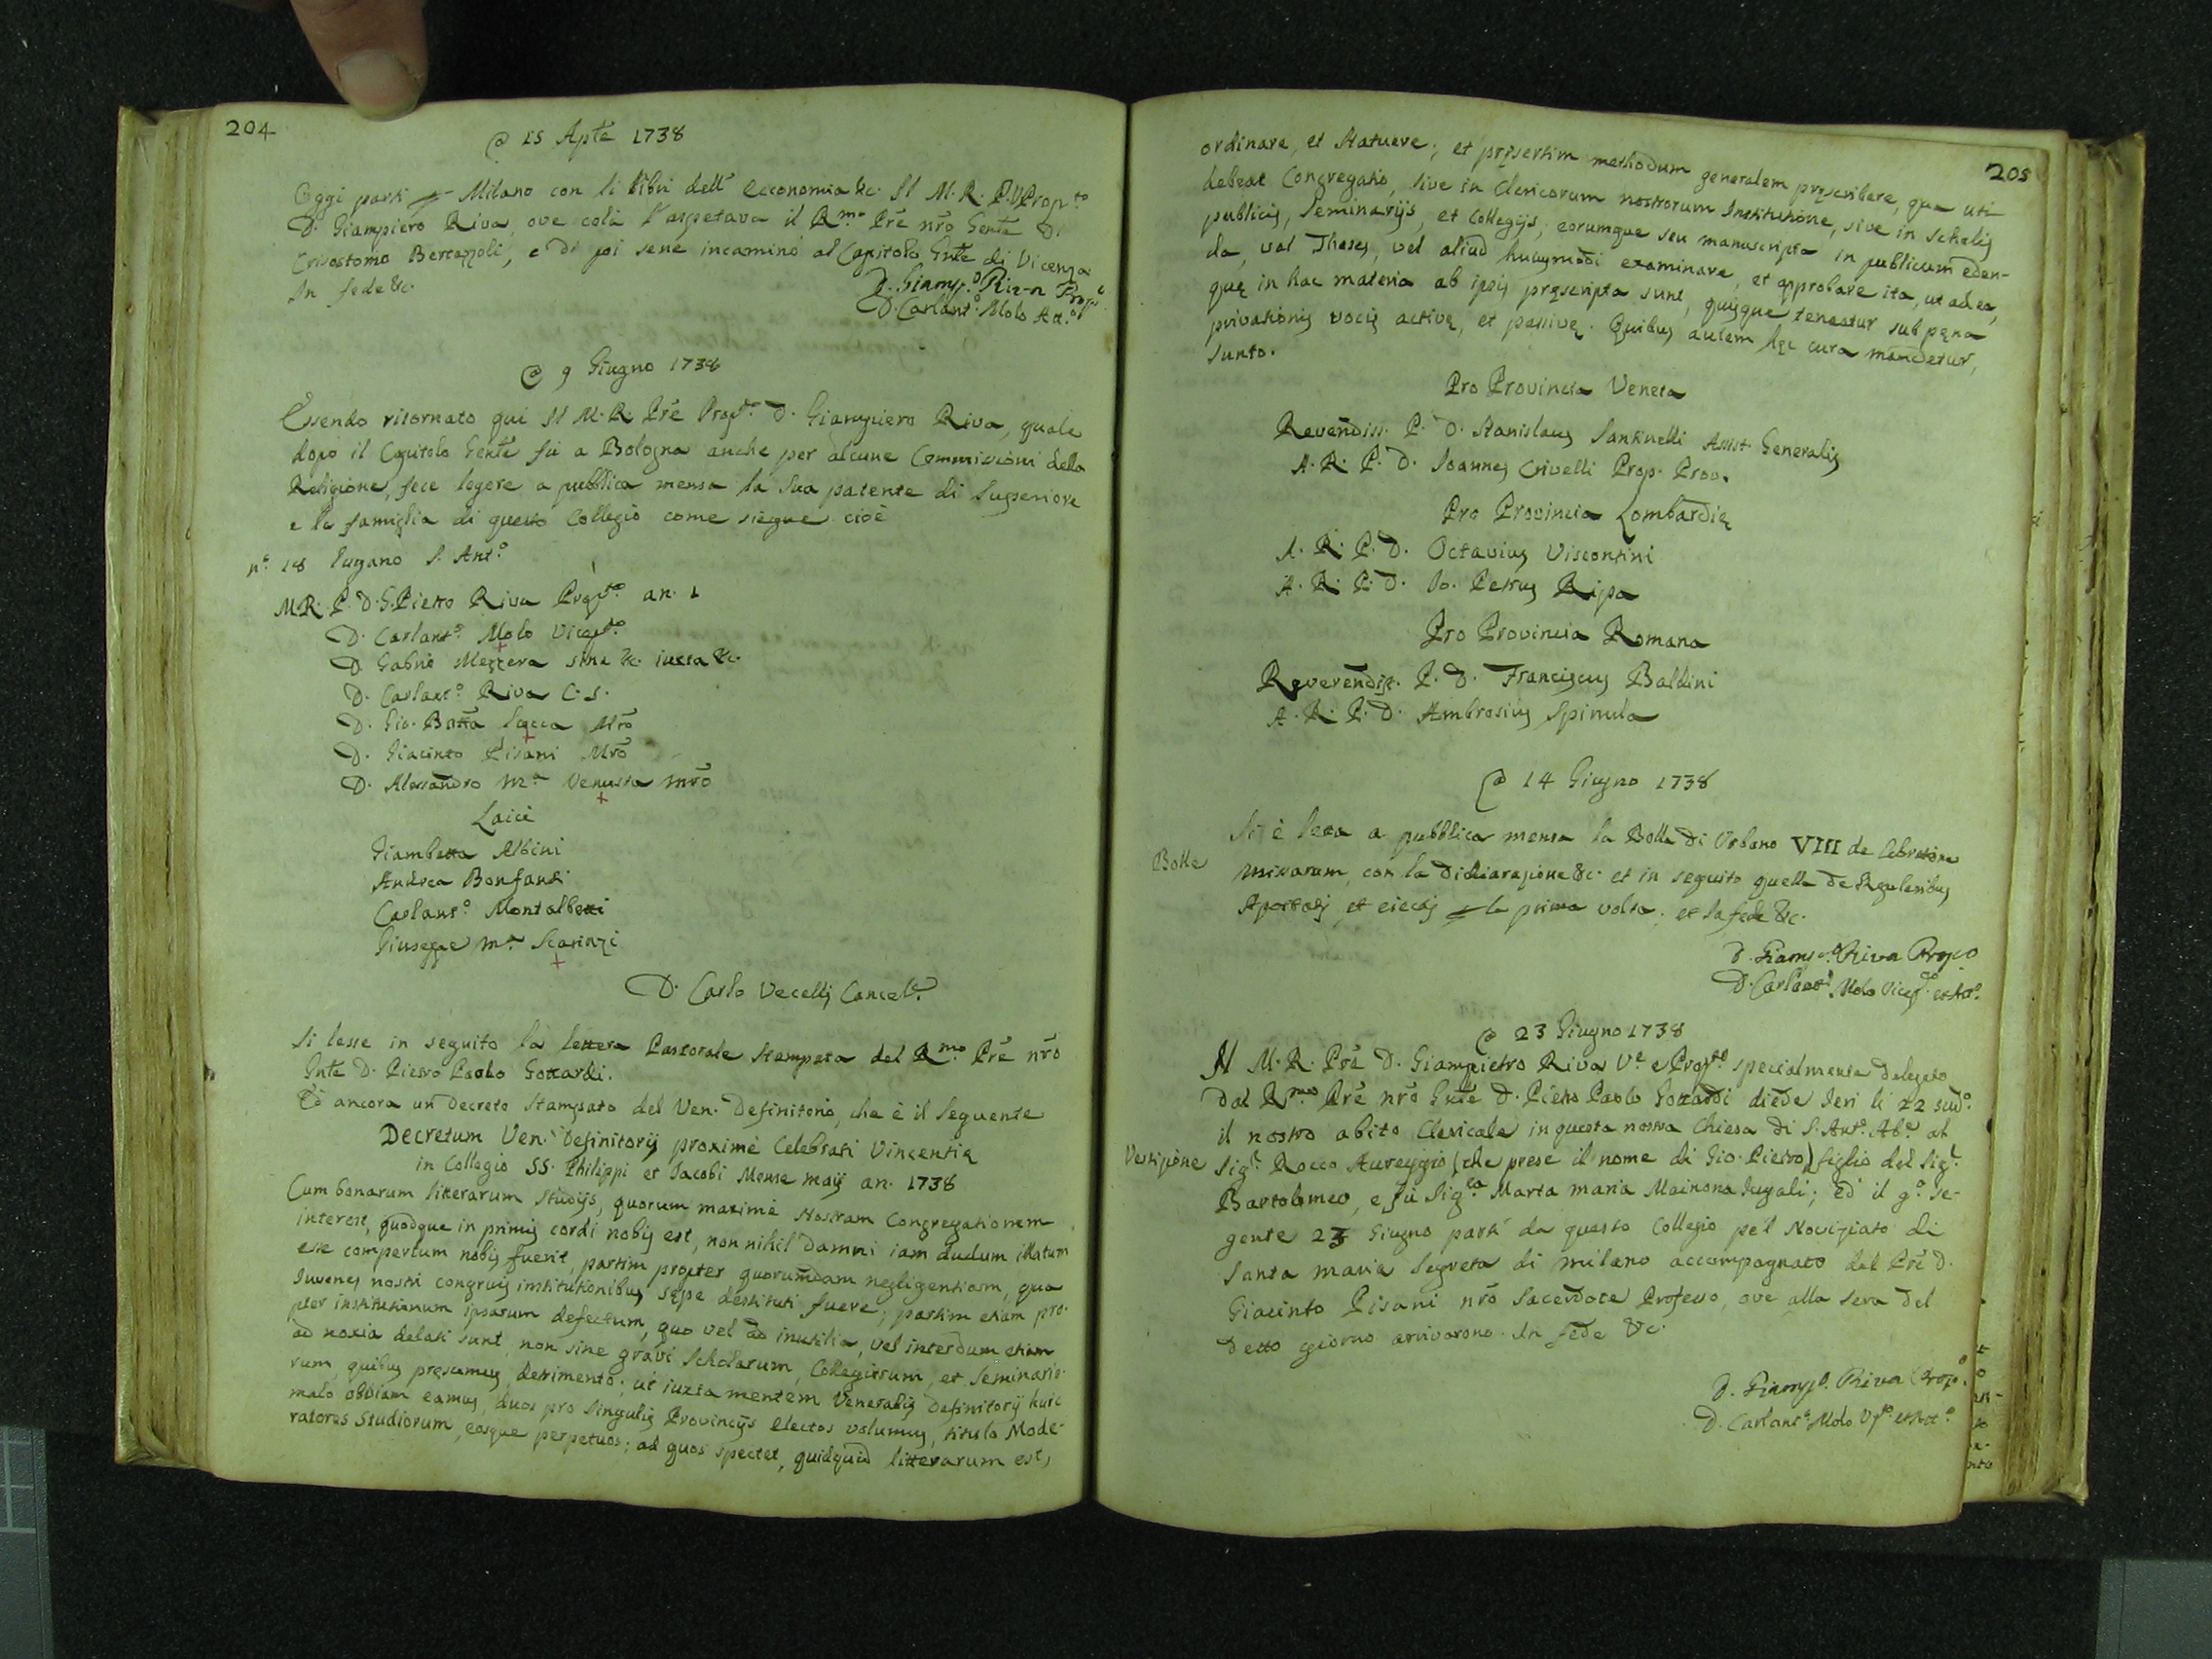 204
@ 15 Aple 1738
Oggi parti p Milano con li libri dell' Economia &c. Il M. R. P. Propto
D. Giampiero Riva, ove colà l'aspetava il Rmo Pre nro Gnle D.
Crisostomo Bertazzoli, e di poi sene incaminò al Capitolo Gnle di Vicenza
In fede &c.
D. Giamp.o Riva Propo
D. Carlant.o Molo Att.o
@ 9 Giugno 1738
Essendo ritornato qui Il M. R. Pre Propto D. Giampiero Riva, quale
dopo il Capitolo Genle fù a Bologna anche per alcune Commissioni della
Religione, fece legere a pubblica mensa la sua patente di Superiore
e la famiglia di questo Collegio come siegue cioè
n.o 18 Lugano S. Ant.o
M.R. P. D. G. Pietro Riva Propto an. 1
D. Carlant.o Molo Vicepto
D. Gabrio Mezzera sine &c. iuxta &c.
D. Carlant.o Riva C. S.
D. Gio. Batta Sacca Mro
D. Giacinto Pisani Mro
D. Alessandro M.a Venusta mro
Laici
Giambatta Albini
Andrea Bonfanti
Carlant.o Montalbetti
Giuseppe M.a Scarinzi
D. Carlo Vecellj Cancel.e
Si lesse in seguito la lettera Pastorale stampata del Rmo Pre nro
Gnle D. Pietro Paolo Gottardi.
Ed ancora un decreto stampato del Ven. Definitorio, che è il seguente
Decretum Ven. Definitorij proximè Celebrati Vincentię
in Collegio SS. Philippi et Jacobi Mense maij an. 1738
Cum bonarum litterarum studijs, quorum maximè Nostram Congregationem
interest, quodque in primis cordi nobis est, non nihil damni iam dudum illatum
esse compertum nobis fuerit, partim propter quorumdam negligentiam, qua
Juvenes nostri congruis institutionibus sępe destituti fuere; partim etiam pro-
pter institutionum ipsarum defectum, quo vel ad inutilia, vel interdum etiam
ad noxia delati sunt, non sine gravi Scholarum, Collegiorum, et Seminario-
rum, quibus pręsumus, detrimento; ut iuxta mentem Venerabilis Definitorij huic
malo obviam eamus, duos pro singulis Provincijs electos volumus, titulo Mode-
ratores Studiorum, eosque perpetuos; ad quos spectet, quidquid litterarum est,
205
ordinare, et statuere; et pręsertim methodum generalem pręscribere, qua uti
debeat Congregatio, sive in Clericorum nostrorum Institutione, sive in scholis
publicis, Seminarijs, et Collegijs; eorumque seu manuscripta in publicum eden-
da, vel Theses, vel aliud huiusmodi examinare, et approbare ita, ut ad ea,
quę in hac materia ab ipsis pręscripta sunt, quisque teneatur sub pęna
privationis vocis activę, et passivę. Quibus autem hęc cura mandetur,
sunto.
Pro Provincia Veneta
Reverendiss. P. D. Stanislaus Santinelli Assist. Generalis
A. R. P. D. Joannes Crivelli Prep. Prov.
Pro Provincia Lombardię
A. R. P. D. Octavius Viscontini
A. R. P. D. Jo. Petrus Ripa
Pro Provincia Romana
Reverendiss. P. D. Franciscus Baldini
A. R. P. D. Ambrosius Spinula
@ 14 Giugno 1738
Bolle
Si è letta a pubblica mensa la Bolla di Urbano VIII de Celebratione
missarum, con la dichiarazione &c. et in seguito quella de Regularibus
Apostatis et eiectis p la prima volta. et In fede &c.
D. Giamp.o Riva Propo
D. Carlant.o Molo Vicepto et Att.o
@ 23 Giugno 1738
Il M. R. Pre D. Giampietro Riva V.e e Propto specialmente delegato
dal Rmo Pre nro Gnle D. Pietro Paolo Gottardi diede Ieri li 22 sud.o
il nostro abito Clericale in questa nostra Chiesa di S. Ant.o Ab.e al
Vestizione
Sig.r Rocco Aureggio (che prese il nome di Gio. Pietro) figlio del Sig.r
Bartolomeo, e fù Sig.ra Marta Maria Mainona Jugali; ed il g.o se-
gente 23 Giugno partì da questo Collegio pel Noviziato di
Santa Maria Segreta di Milano accompagnato dal Pre D.
Giacinto Pisani nro Sacerdote Professo, ove alla sera del
detto giorno arrivarono. In fede &c.
D. Giamp.o Riva Propo
D. Carlant.o Molo Vpto et Att.o